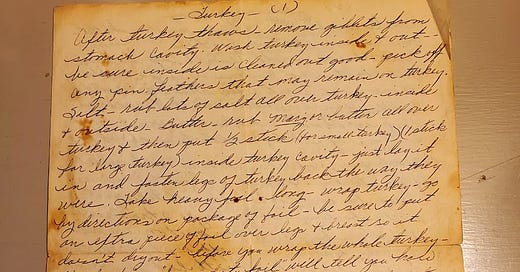 — Turkey — (1)
After turkey thaws - remove giblets from
stomach cavity. Wash turkey inside & out -
be sure inside is cleaned out good - pick off
any pin feathers that may remain on turkey.
Salt - rub lots of salt all over turkey - inside
& outside - butter - rub marg or butter all over
turkey & then put ½ stick (for small turkey) (1 stick
for large turkey) inside turkey cavity - just lay it
in and fasten legs of turkey back the way they
were. Take heavy foil - long - wrap turkey - go
by directions on package of foil - be sure to put
an extra piece of foil over legs & breast so it
doesn't dry out - before you wrap the whole turkey -
foil will tell you how